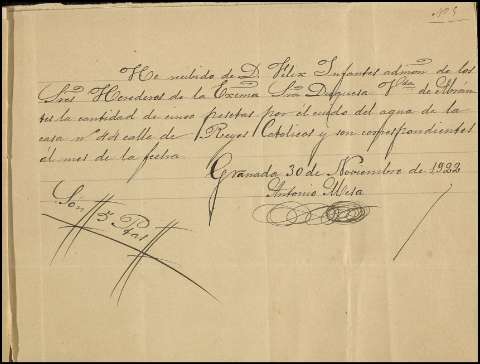 Nº 5
He recibido de D. Felix Infantes admon de los
Sres Herederos de la Excma Sra Duquesa Vda de Abran
tes la cantidad de cinco pesetas por el cuido del agua de la
casa nº 44 calle de Reyes Catolicos y son correspondientes
al mes de la fecha
Granada 30 de Noviembre de 1922
Antonio Mesa
Son # 5 Ptas #